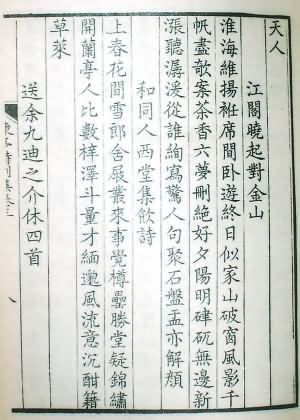 天人
江閣曉起對金山
淮海維揚袵席間卧遊終日似家山破窗風影千
帆盡欹案茶香六夢刪絕好夕陽明硉矹無邊新
漲聽潺湲從誰絢寫驚人句聚石盤盂亦解顏
和同人西堂集飲詩
上春花間雪郎舍展叢來事覺樽罍勝堂疑錦繡
開蘭亭人比數梓澤斗量才緬邈風流意沉酣籍
草萊
送余九迪之介休四首
八